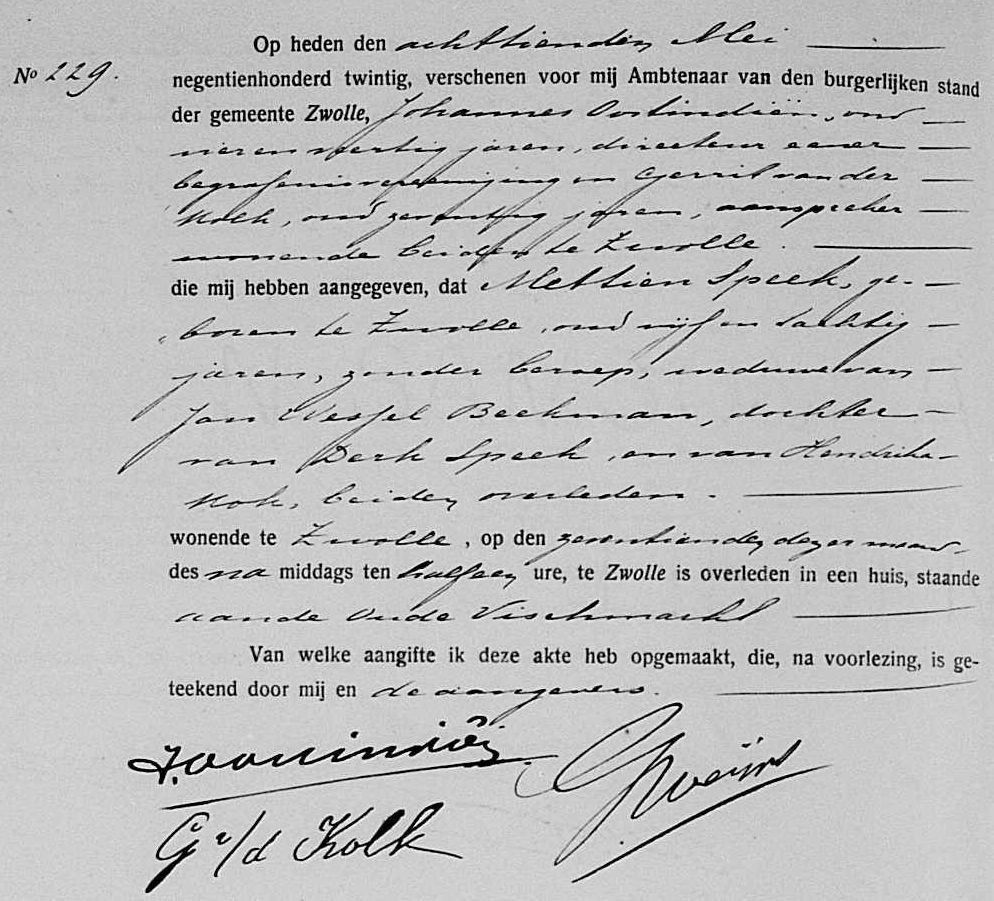 Op heden den achttienden Mei
No 229.
negentienhonderd twintig, verschenen voor mij Ambtenaar van den burgerlijken stand
der gemeente Zwolle, Johannes Oostindiën, oud
vier en veertig jaren, directeur eener
begrafenisvereeniging en Gerrit van der
Kolk, oud zeventig jaren, aanspreker
wonende beiden te Zwolle.
die mij hebben aangegeven, dat Mettien Speek, ge-
boren te Zwolle, oud vijf en tachtig
jaren, zonder beroep, weduwe van
Jan Wessel Beekman, dochter
van Derk Speek, en van Hendrika
Kok, beiden overleden.
wonende te Zwolle, op den zeventienden dezer maand
des na middags ten half een ure, te Zwolle is overleden in een huis, staande
aan de Oude Vischmarkt
Van welke aangifte ik deze akte heb opgemaakt, die, na voorlezing, is ge-
teekend door mij en de aangevers.
J. Oostindiën
G v/d Kolk